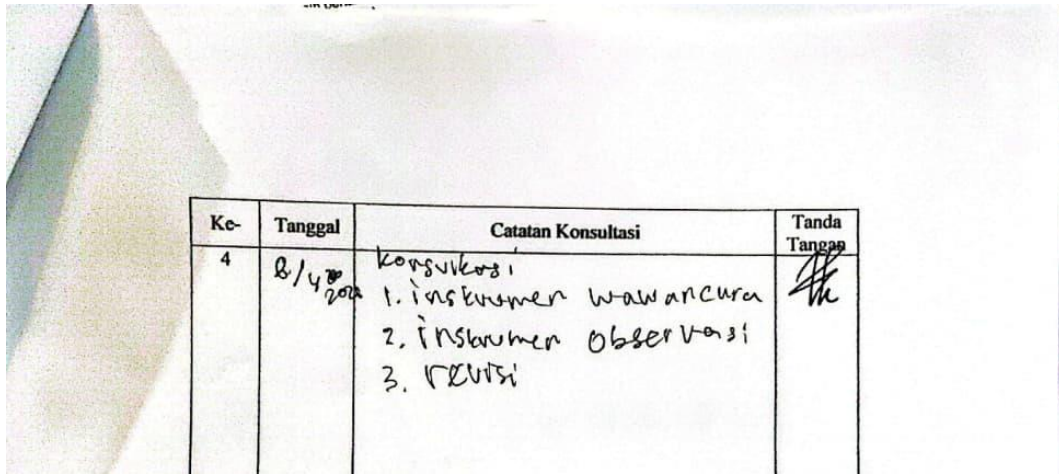 Ke- Tanggal Catatan Konsultasi Tanda Tangan
4 8/4 konsultasi
1. instrumen wawancara
2. instrumen observasi
3. revisi